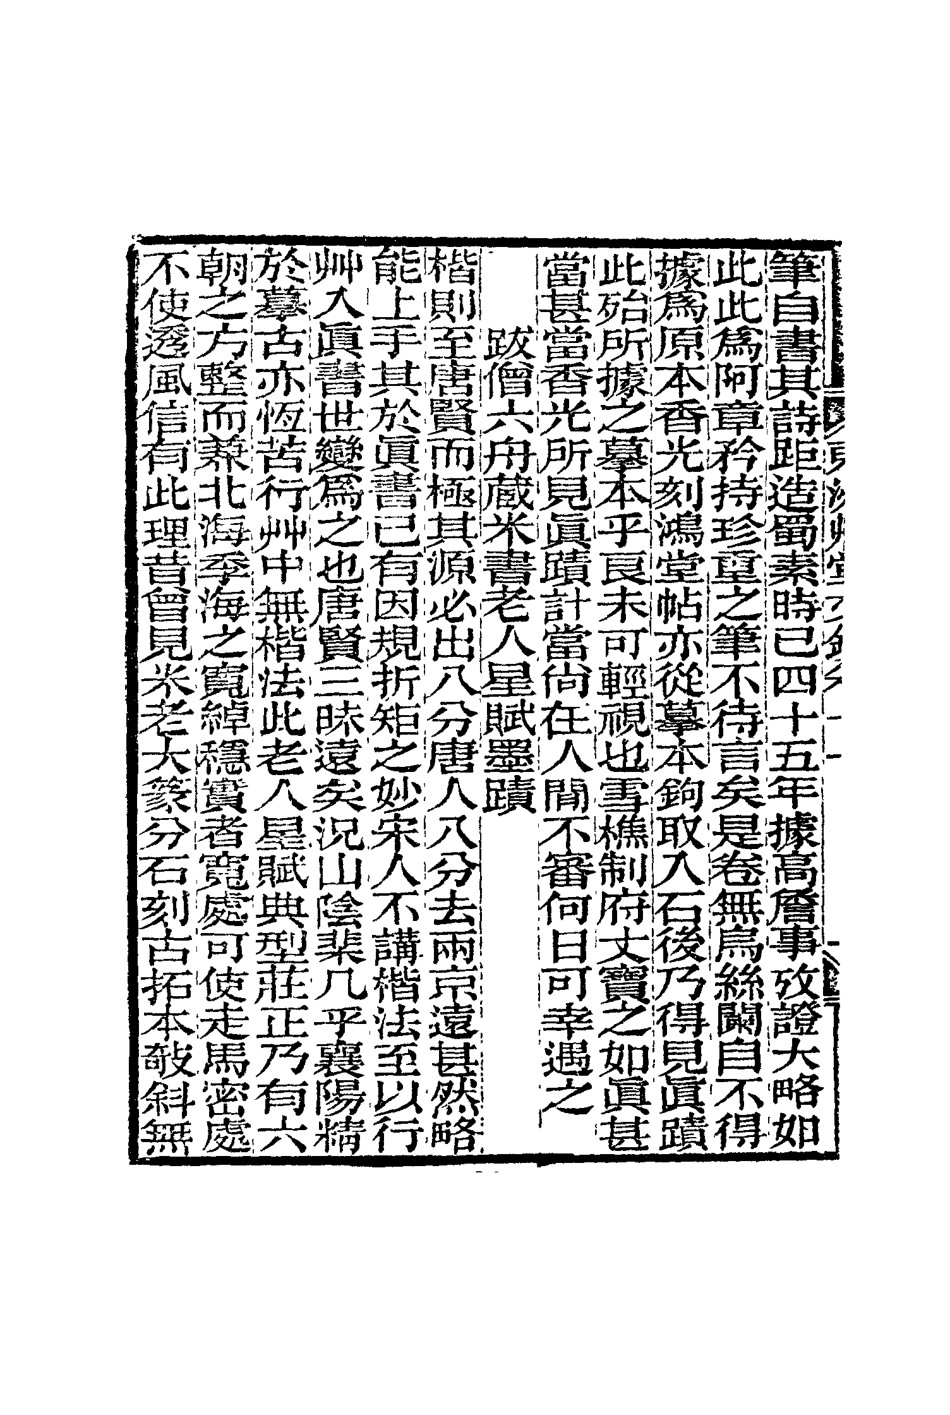 筆自書其詩距造蜀素時已四十五年據高詹事攷證大略如
此此爲阿章矜持珍重之筆不待言矣是卷無烏絲闌自不得
據爲原本香光刻鴻堂帖亦從摹本鉤取入石後乃得見眞蹟
此殆所據之摹本乎良未可輕視也雪樵制府丈寶之如眞甚
當甚當香光所見眞蹟計當尙在人閒不審何日可幸遇之
跋僧六舟藏米書老人星賦墨蹟
楷則至唐賢而極其源必出八分唐人八分去兩京遠甚然略
能上手其於眞書已有因規折矩之妙宋人不講楷法至以行
艸入眞書世變爲之也唐賢三昧遠矣況山陰棐几乎襄陽精
於摹古亦恆苦行艸中無楷法此老人星賦典型莊正乃有六
朝之方整而兼北海季海之寬綽穩實者寬處可使走馬密處
不使透風信有此理昔曾見米老大篆分石刻古拓本敧斜無
東洲艸堂文鈔